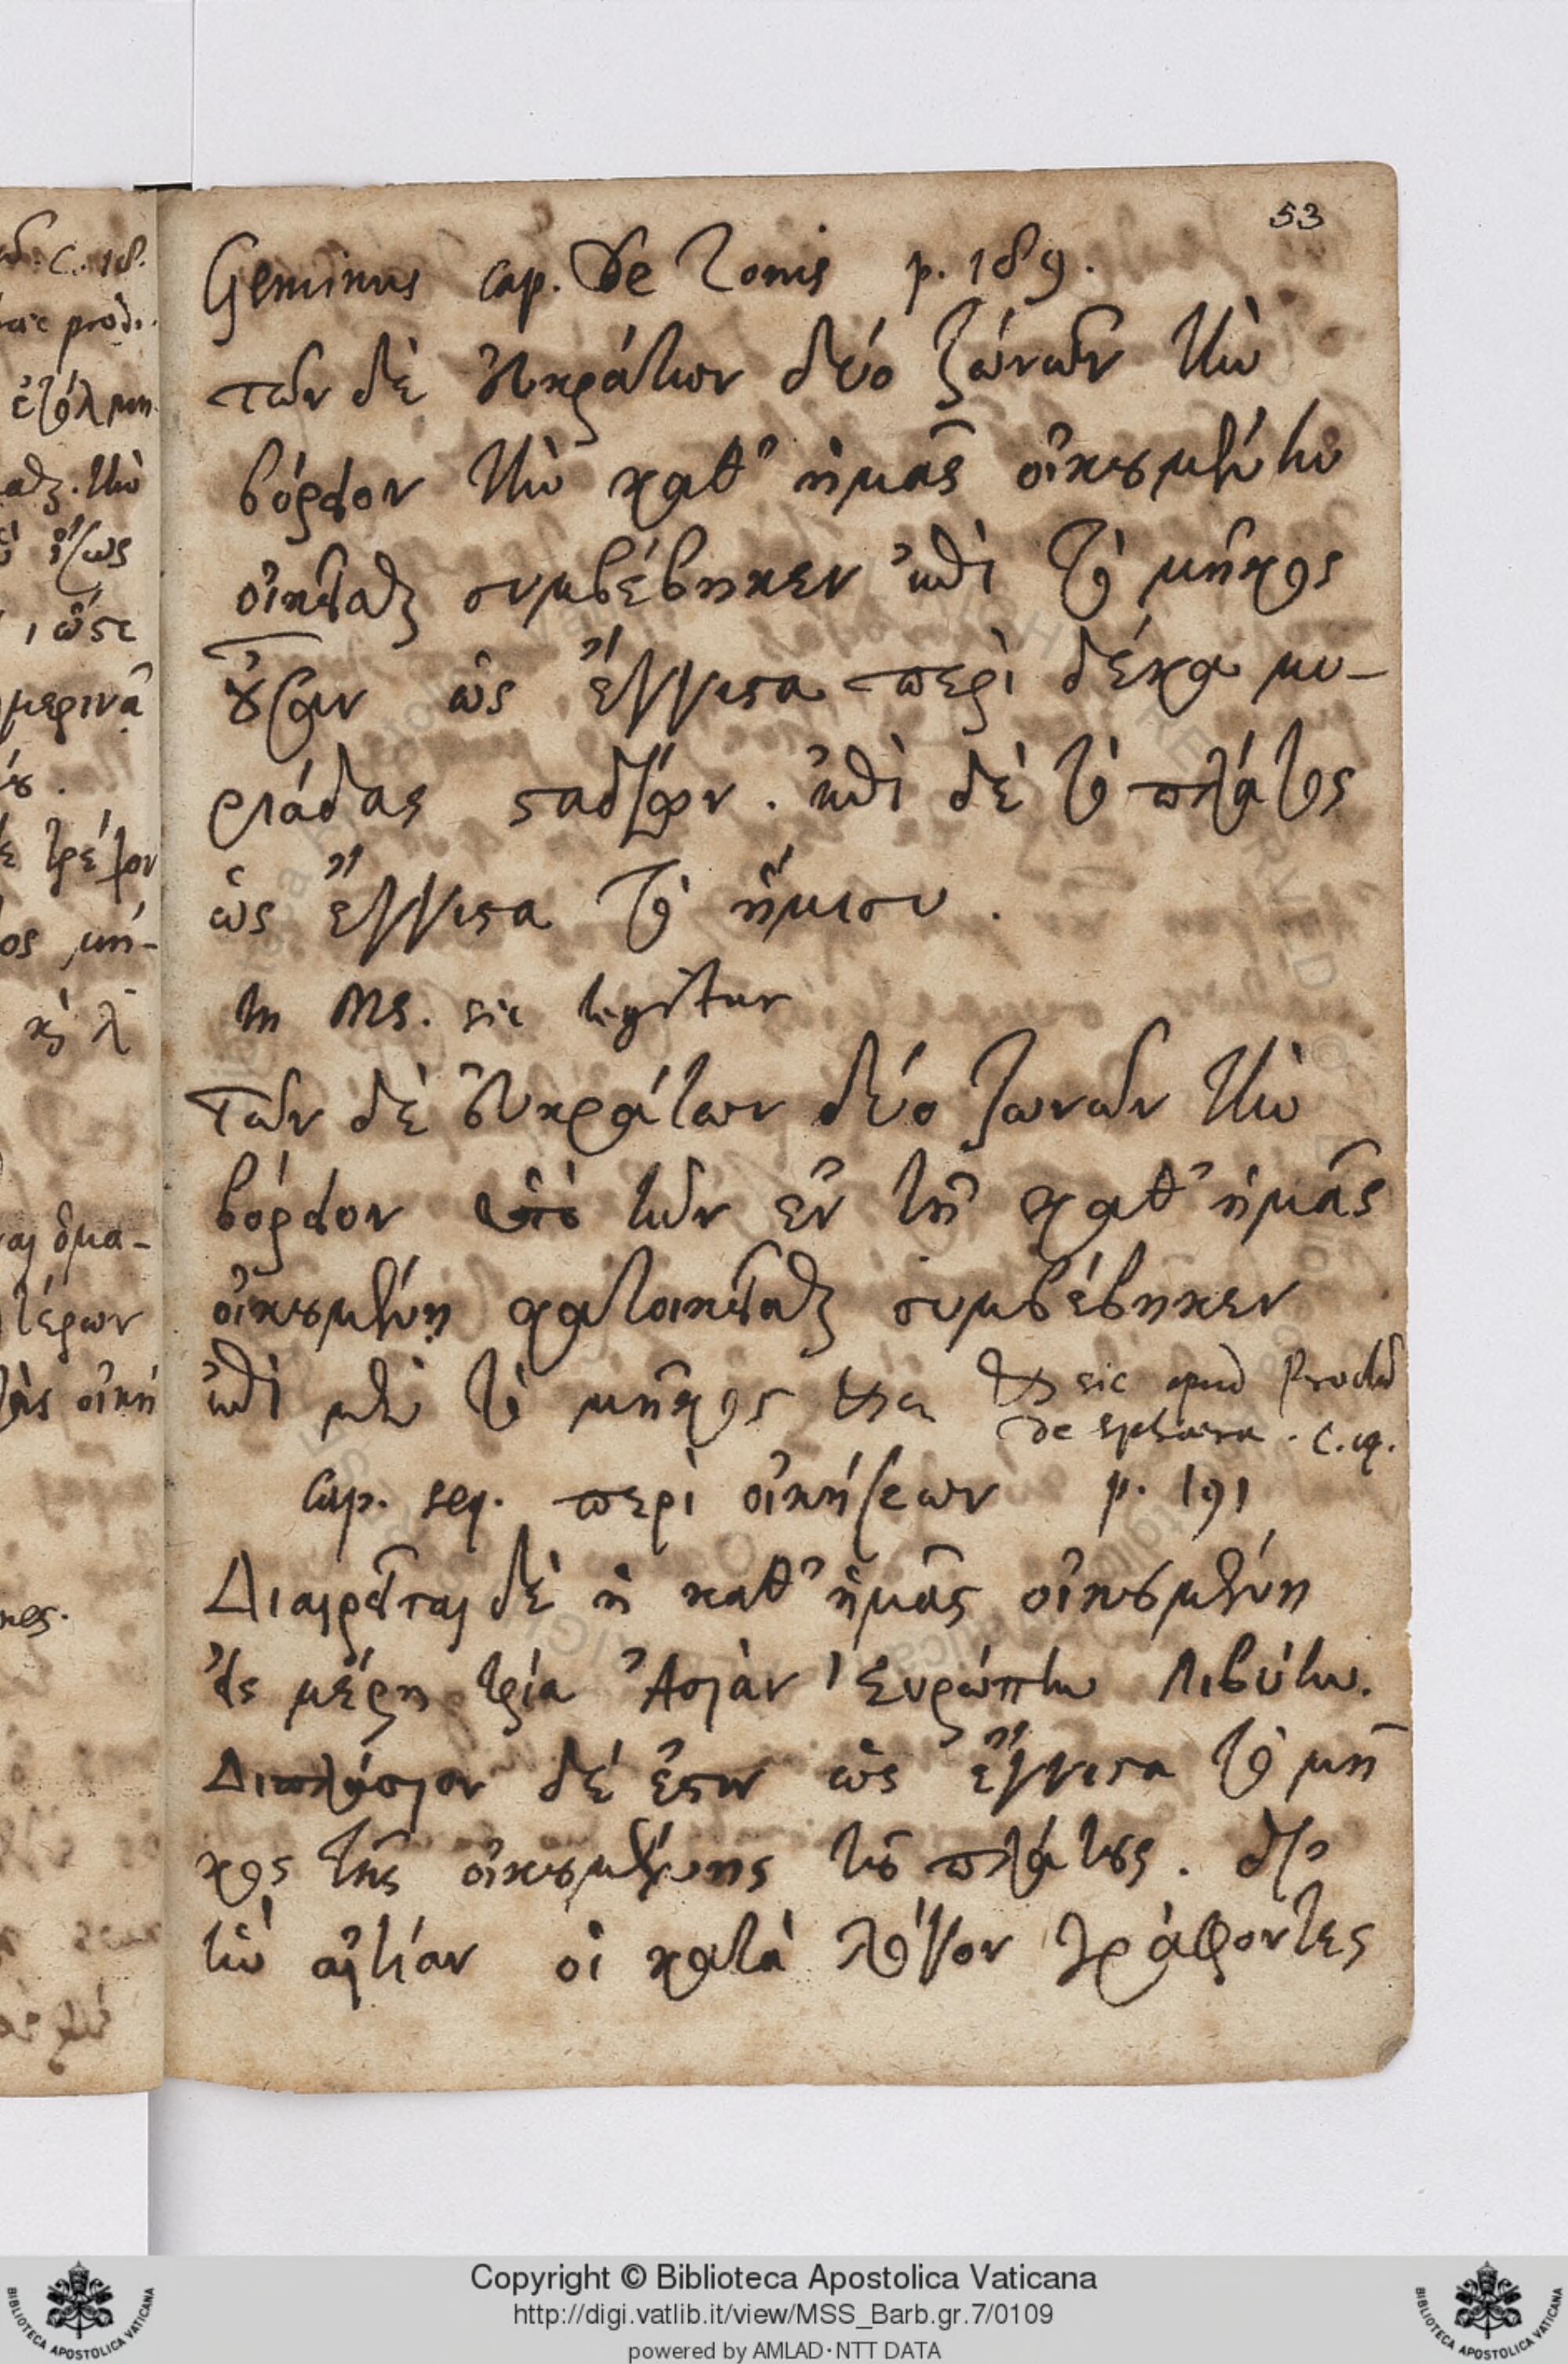 53
Geminus cap. De Zonis p. 189.
τῶν δὲ εὐκράτων δύο ζώνων τὴν
βόρειον τὴν καθ' ἡμᾶς οἰκουμένην
οἰκεῖσθαι συμβέβηκεν ἐπὶ τὸ μῆκος
οὖσαν ὡς ἔγγιστα περὶ δέκα μυ-
ριάδας σταδίων. ἐπὶ δὲ τὸ πλάτος
ὡς ἔγγιστα τὸ ἥμισυ.
In MS. sic legitur
τῶν δὲ εὐκράτων δύο ζωνῶν τὴν
βόρειον ὑπὸ τῶν ἐν τῇ καθ' ἡμᾶς
οἰκουμένῃ κατοικεῖσθαι συμβέβηκεν
ἐπὶ μὲν τὸ μῆκος &c. & sic apud Proclum
de sphaera. c. 19.
Cap. seq. περὶ οἰκήσεων p. 191
Διαιρεῖται δὲ ἡ καθ' ἡμᾶς οἰκουμένη
εἰς μέρη τρία Ἀσίαν Εὐρώπην Λιβύην.
Διπλάσιον δέ ἐστιν ὡς ἔγγιστα τὸ μῆ
κος τῆς οἰκουμένης τοῦ πλάτους. δι'
ἣν αἰτίαν οἱ κατὰ λόγον γράφοντες
c. 18.
prodi.
ἐτόλμη
τὴν
ὥστε
μερινᾶ
μή-
ὁμα-
τέρων
Copyright © Biblioteca Apostolica Vaticana
http://digi.vatlib.it/view/MSS_Barb.gr.7/0109
powered by AMLAD·NTT DATA
BIBLIOTECA APOSTOLICA VATICANA
BIBLIOTECA APOSTOLICA VATICANA